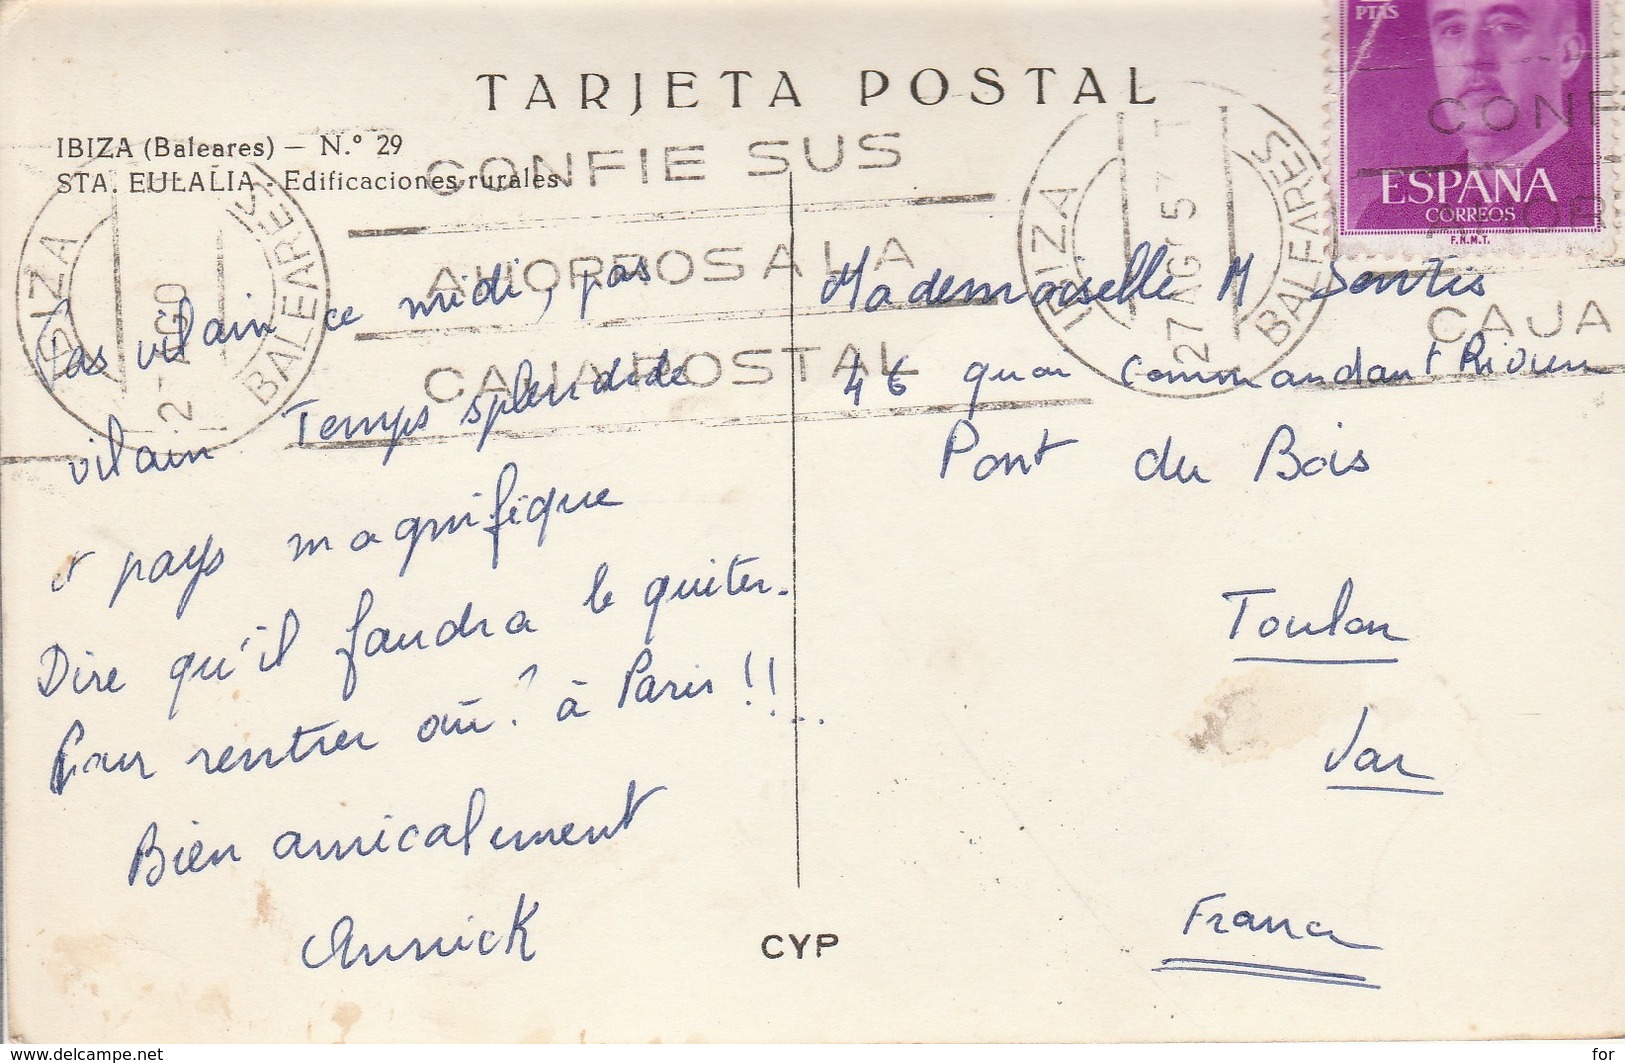 TARJETA POSTAL
IBIZA (Baleares) — N.º 29
STA. EULALIA - Edificaciones rurales
PTAS
ESPAÑA
CORREOS
F.N.M.T.
CONFIE SUS
AHORROS A LA
CAJA POSTAL
IBIZA
BALEARES
IBIZA
BALEARES
27 AG 57
CONF
AHOR
CAJA
Pas vilain ce midi, pas
vilain Temps splendide
et pays magnifique
Dire qu'il faudra le quiter.
Pour rentrer où? à Paris!!...
Bien amicalement
Annick
Mademoiselle M Sentis
46 Commandant
Pont du Bois
Toulon
Var
France
CYP
www.delcampe.net
for